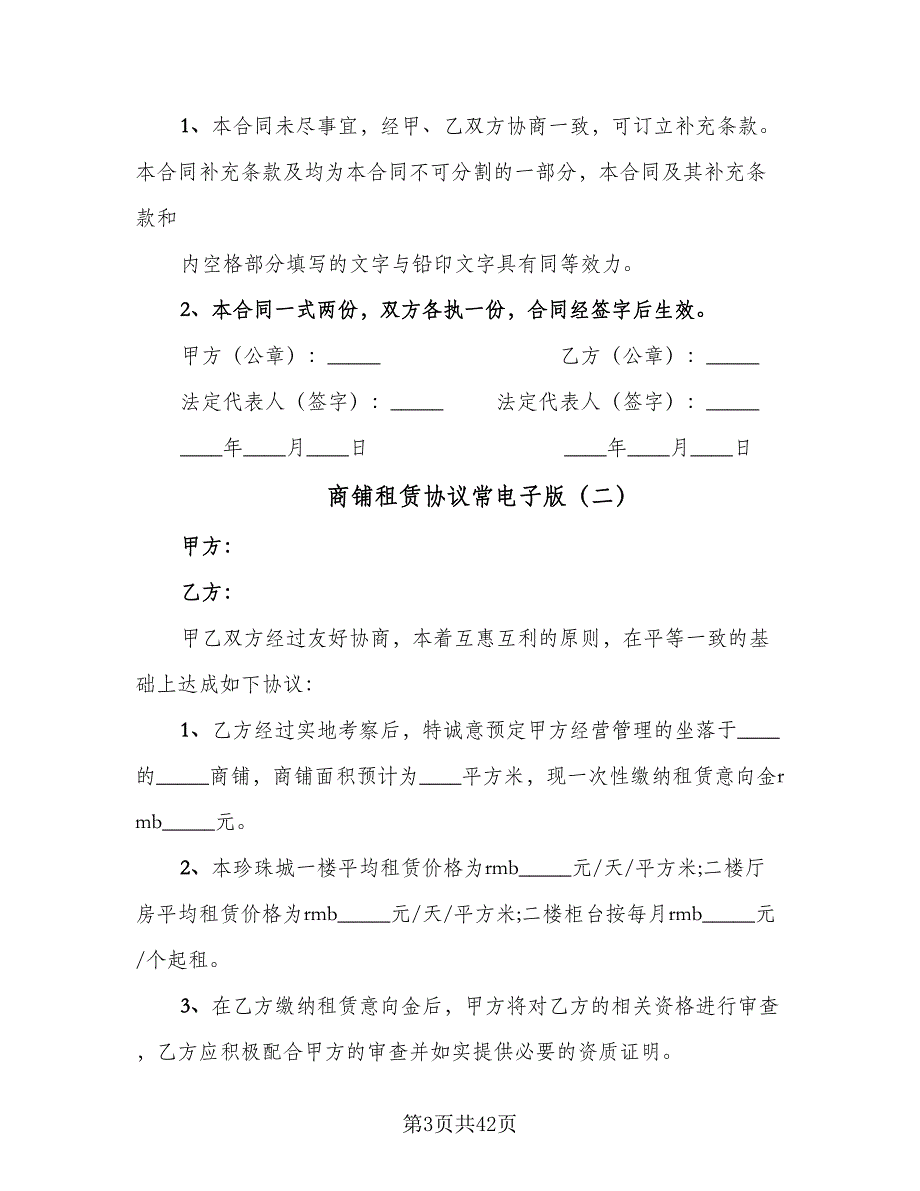 1、本合同未尽事宜，经甲、乙双方协商一致，可订立补充条款。
本合同补充条款及均为本合同不可分割的一部分，本合同及其补充条
款和
内空格部分填写的文字与铅印文字具有同等效力。
2、本合同一式两份，双方各执一份，合同经签字后生效。
甲方（公章）：_____ 乙方（公章）：_____
法定代表人（签字）：_____ 法定代表人（签字）：_____
____年____月____日 ____年____月____日
商铺租赁协议常电子版（二）
甲方：
乙方：
甲乙双方经过友好协商，本着互惠互利的原则，在平等一致的基
础上达成如下协议：
1、乙方经过实地考察后，特诚意预定甲方经营管理的坐落于____
的_____商铺，商铺面积预计为____平方米，现一次性缴纳租赁意向金r
mb_____元。
2、本珍珠城一楼平均租赁价格为rmb_____元/天/平方米;二楼厅
房平均租赁价格为rmb_____元/天/平方米;二楼柜台按每月rmb_____元
/个起租。
3、在乙方缴纳租赁意向金后，甲方将对乙方的相关资格进行审查
，乙方应积极配合甲方的审查并如实提供必要的资质证明。
第3页共42页